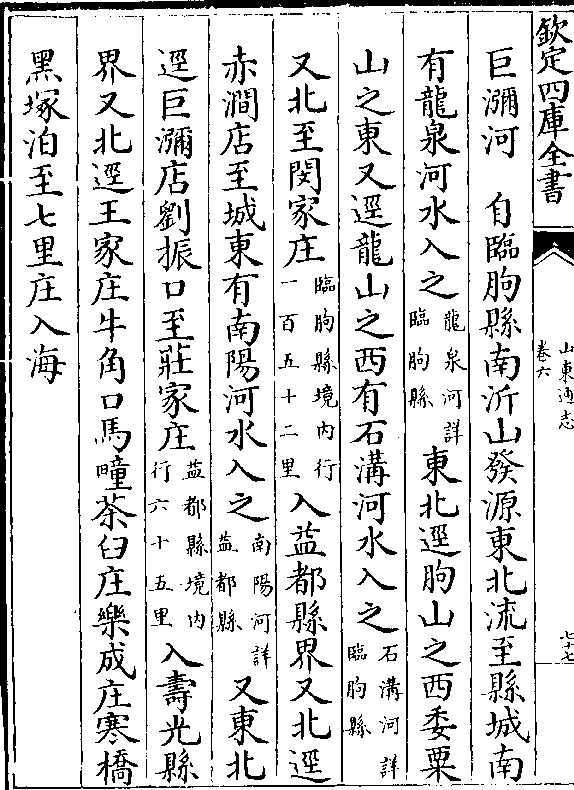 欽定四庫全書
山東通志
卷六
七十七
巨瀰河　自臨朐縣南沂山發源東北流至縣城南
有龍泉河水入之龍泉河詳臨朐縣東北逕朐山之西委粟
山之東又逕龍山之西有石溝河水入之石溝河詳臨朐縣
又北至閔家庄臨朐縣境内行一百五十二里入益都縣界又北逕
赤澗店至城東有南陽河水入之南陽河詳益都縣又東北
逕巨瀰店劉振口至莊家庄益都縣境内行六十五里入壽光縣
界又北逕王家庄牛角口馬疃茶臼庄樂成庄寒橋
黑塚泊至七里庄入海